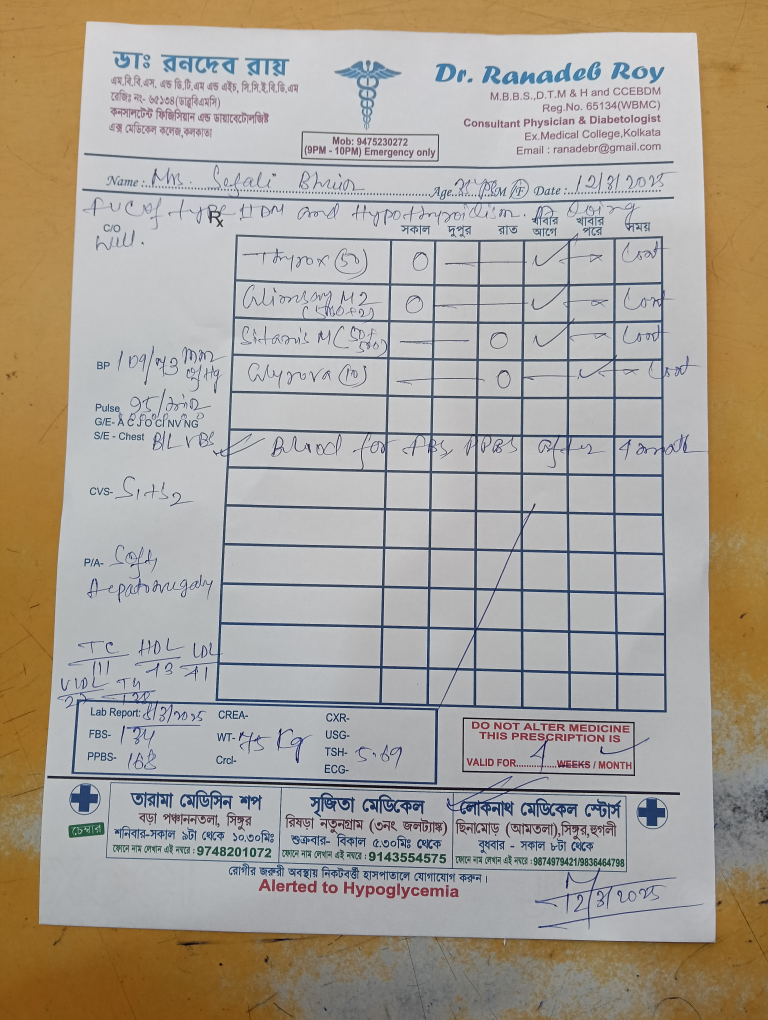 ডাঃ রনদেব রায়
এম.বি.বি.এস. এন্ড ডি.টি.এম এন্ড এইচ, সি.সি.ই.বি.ডি.এম
রেজিঃ নং- ৬৫১৩৪(ডাব্লুবিএমসি)
কনসালটেন্ট ফিজিসিয়ান এন্ড ডায়াবেটোলজিষ্ট
এক্স মেডিকেল কলেজ,কলকাতা
Mob: 9475230272
(9PM - 10PM) Emergency only
Dr. Ranadeb Roy
M.B.B.S.,D.T.M & H and CCEBDM
Reg.No. 65134(WBMC)
Consultant Physician & Diabetologist
Ex.Medical College,Kolkata
Email : ranadebr@gmail.com
Name: Mrs. Sefali Age M/F Date: 12/3/2025
F/UC of type II DM and Hypothyroidism.
Rx
C/O
Well.
সকাল দুপুর রাত খাবার আগে খাবার পরে সময়
Thyrox (50) O — — ✓ — x Cont
M2 O — — ✓ — x Cont
(500+2)
Sitanis M (50+500) — — O ✓ — x Cont
(10) — — O — ✓ — x Cont
BP 109/73 mm of Hg
Pulse 95/min
G/E- A C J O Cl NV NG
S/E - Chest B/L VBS
Blood for FBS, PPBS after 4 month
CVS- S1+S2
P/A- Soft,
Hepatomegaly
TC HDL LDL
111 43 41
VLDL TG
27
Lab Report: 8/3/2025 CREA- CXR-
FBS- 134 WT- 75 Kg USG-
PPBS- 168 Crcl- TSH- 5.69
ECG-
DO NOT ALTER MEDICINE
THIS PRESCRIPTION IS
VALID FOR 4 WEEKS / MONTH
চেম্বার
তারামা মেডিসিন শপ
বড়া পঞ্চাননতলা, সিঙ্গুর
শনিবার-সকাল ৯টা থেকে ১০.৩০মিঃ
ফোনে নাম লেখান এই নম্বরে : 9748201072
সৃজিতা মেডিকেল
রিষড়া নতুনগ্রাম (৩নং জলট্যাঙ্ক)
শুক্রবার- বিকাল ৫.৩০মিঃ থেকে
ফোনে নাম লেখান এই নম্বরে : 9143554575
লোকনাথ মেডিকেল স্টোর্স
ছিনামোড় (আমতলা),সিঙ্গুর,হুগলী
বুধবার - সকাল ৮টা থেকে
ফোনে নাম লেখান এই নম্বরে : 9874979421/9836464798
রোগীর জরুরী অবস্থায় নিকটবর্তী হাসপাতালে যোগাযোগ করুন।
Alerted to Hypoglycemia
12/3/2025